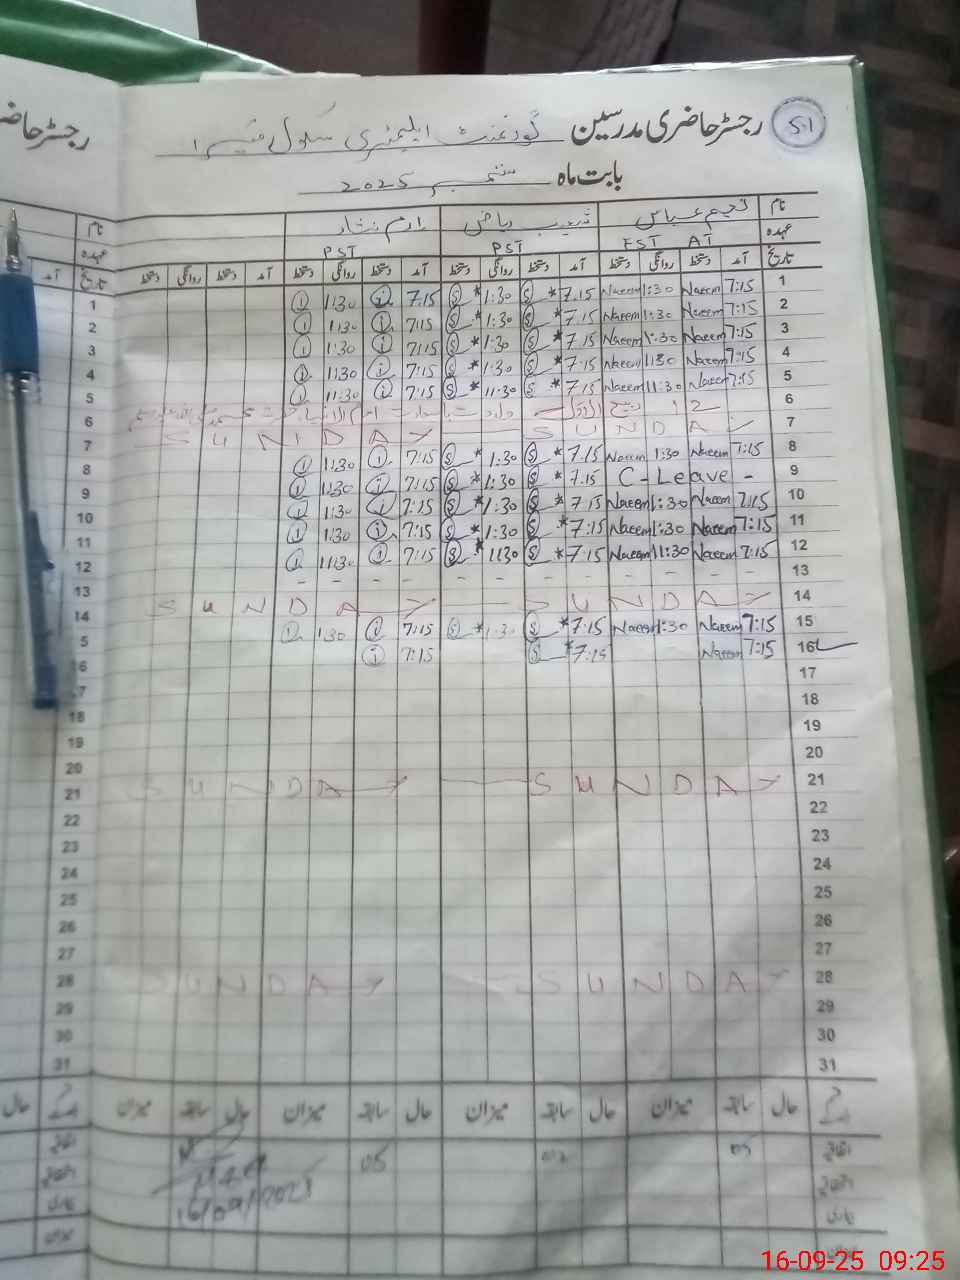 51 رجسٹر حاضری مدرسین گورنمنٹ ایلیمنٹری سکول
بابت ماہ ستمبر 2025
نام نعیم عباس ریاض ارم نثار نام
عہدہ EST AT PST PST عہدہ
تاریخ آمد دستخط روانگی دستخط آمد دستخط روانگی دستخط آمد دستخط روانگی دستخط آمد دستخط روانگی دستخط تاریخ
1 7:15 Naeem 1:30 Naeem 7.15 * S 1:30 * S 7:15 i 1:30 i 1
2 7:15 Naeem 1:30 Naeem 7.15 * S 1:30 * S 7:15 i 1:30 i 2
3 7:15 Naeem 1:30 Naeem 7.15 * S 1:30 * S 7:15 i 1:30 i 3
4 7:15 Naeem 1:30 Naeem 7:15 * S 1:30 * S 7:15 i 1:30 i 4
5 7:15 Naeem 11:30 Naeem 7:15 * S 11:30 * S 7:15 i 11:30 i 5
6 12 ربیع الاول ولادت باسعادت 6
7 SUNDAY SUNDAY 7
8 7:15 Naeem 1:30 Naeem 7.15 * S 1:30 * S 7:15 i 1:30 i 8
9 C-Leave - 7:15 * S 1:30 * S 7:15 i 1:30 i 9
10 7:15 Naeem 1:30 Naeem 7 15 * S 1:30 * S 7:15 i 1:30 i 10
11 7:15 Naeem 1:30 Naeem 7:15 * S 1:30 * S 7:15 i 1:30 i 11
12 7:15 Naeem 11:30 Naeem 7:15 * S 11:30 * S 7:15 i 11:30 i 12
13 - - - - - - - - - - 13
14 SUNDAY SUNDAY 14
15 7:15 Naeem 1:30 Naeem 7:15 * S 1:30 * S 7:15 i 1:30 i 5
16 7:15 Naeem 7:15 * S 7:15 i 16
17
18 18
19 19
20 20
21 SUNDAY SUNDAY 21
22 22
23 23
24 24
25 25
26 26
27 27
28 SUNDAY SUNDAY 28
29 29
30 30
31 31
حال سابقہ میزان حال سابقہ میزان حال سابقہ میزان حال سابقہ میزان
05 05
16/09/2025
رجسٹر حاضر
نام
عہدہ
تاریخ آمد
حال
16-09-25 09:25